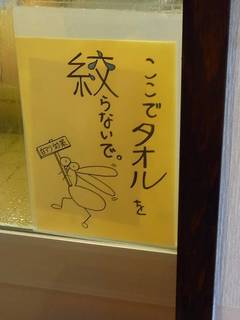 ここでタオルを
絞らないで。